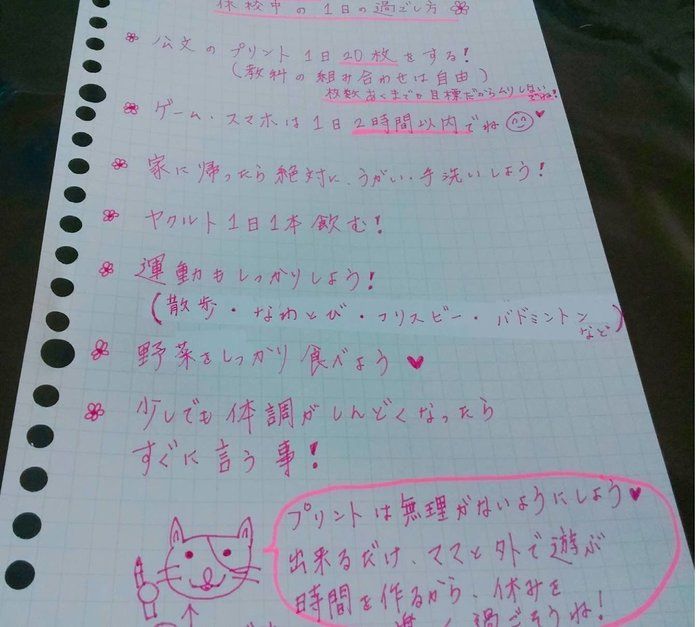 休校中の1日の過ごし方
公文のプリント1日20枚をする!
(教科の組み合わせは自由)
枚数あくまでも目標だからムリしないでね!
ゲーム・スマホは1日2時間以内でね
家に帰ったら絶対に、うがい・手洗いしよう!
ヤクルト1日1本飲む!
運動もしっかりしよう!
(散歩・なわとび・フリスビー・バドミントンなど)
野菜をしっかり食べよう♥
少しでも体調がしんどくなったら
すぐに言う事!
プリントは無理がないようにしよう♥
出来るだけ、ママと外で遊ぶ
時間を作るから、休みを
過ごそうね!